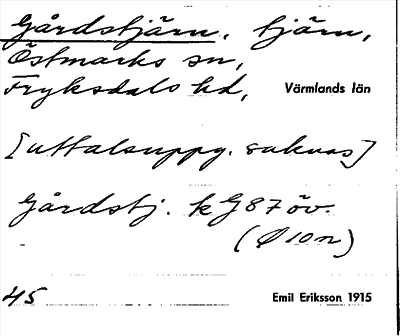 Gårdstjärn, tjärn,
Östmarks sn,
Fryksdals hd, Värmlands län
[uttalsuppg. saknas]
Gårdstj. k G87 öv.
(Ø 10 n)
45 Emil Eriksson 1915